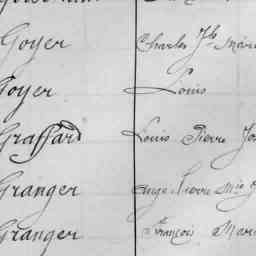 Goyer Charles Jh Marie
Goyer Louis
Graffard Louis Pierre
Granger Ange Pierre Mie
Granger François Marie